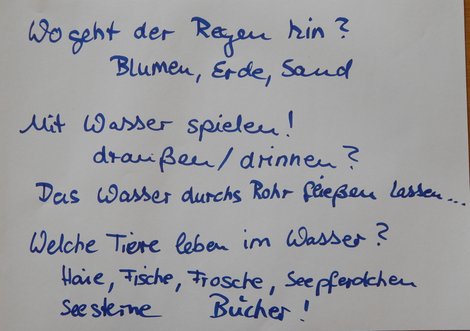 Wo geht der Regen hin?
Blumen, Erde, Sand
Mit Wasser spielen!
draußen/drinnen?
Das Wasser durchs Rohr fließen lassen...
Welche Tiere leben im Wasser?
Haie, Fische, Frösche, Seepferdchen
Seesterne Bücher!